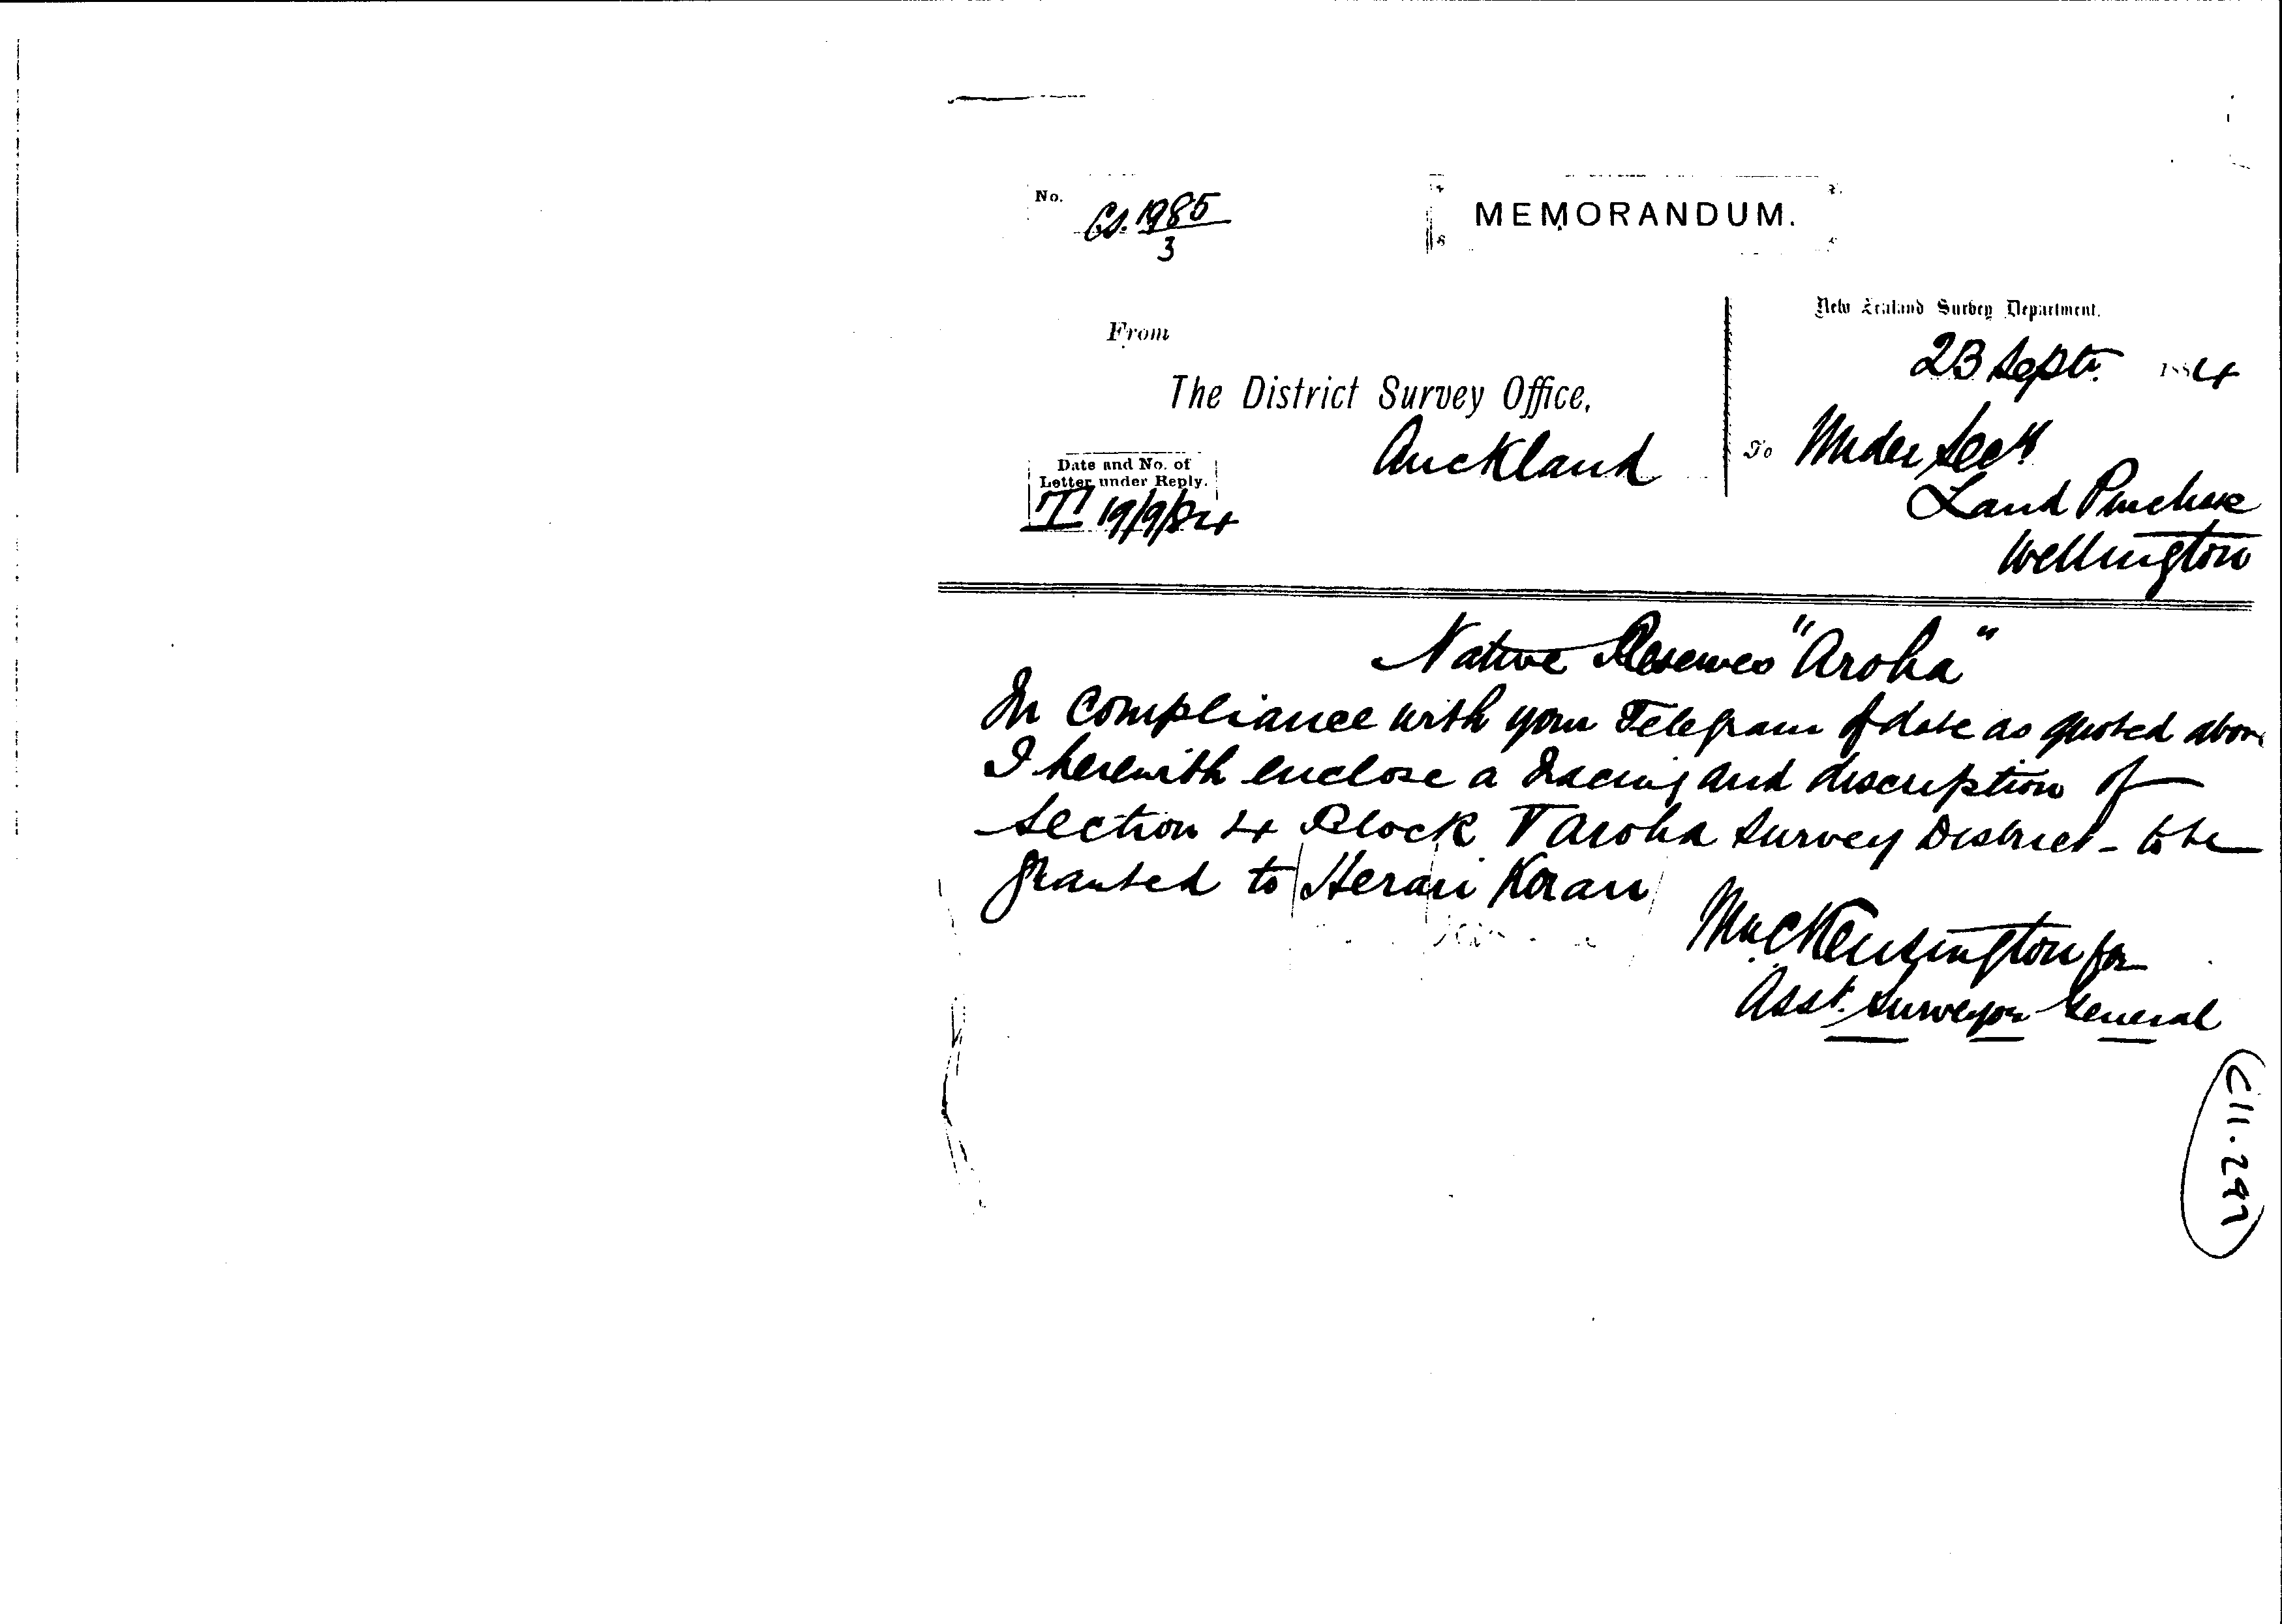 No. CS. 1985/3
MEMORANDUM.
New Zealand Survey Department.
23 Septr. 1884
From
The District Survey Office,
Auckland
Date and No. of
Letter under Reply.
T 19/9/84
To Under Secy
Land Purchase
Wellington
Native Reserves "Aroha"
In compliance with your Telegram of date as quoted above
I herewith enclose a tracing and description of
Section 4 Block V Aroha Survey District - to be
granted to
Kensington for
Asst. Surveyor General
C11.297